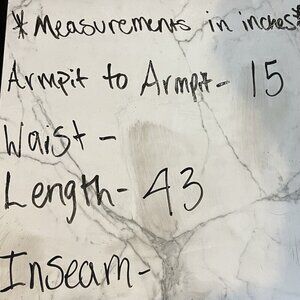 *Measurements in inches*
Armpit to Armpit- 15
Waist -
Length- 43
Inseam-